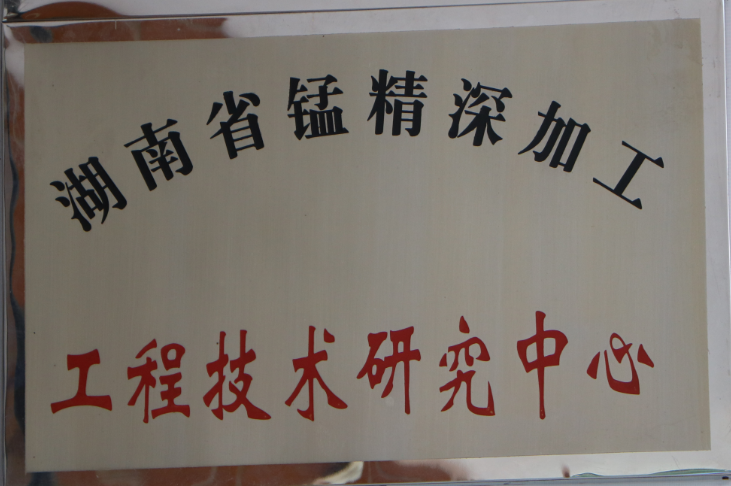 湖南省锰精深加工
工程技术研究中心